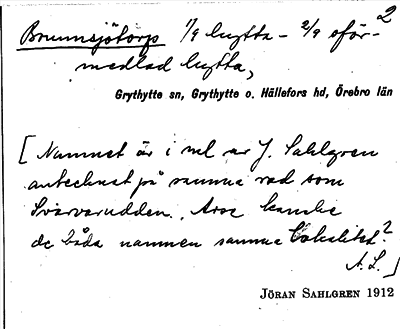 Brunnsjötorp 1/9 hytta – 2/9 oför- 2
medlad hytta,
Grythytte sn, Grythytte o. Hällefors hd, Örebro län
[Namnet är i ms av J. Sahlgren
antecknat på samma rad som
Svarvarudden. Avse kanske
de båda namnen samma lokalitet?
A. L.]
JÖRAN SAHLGREN 1912